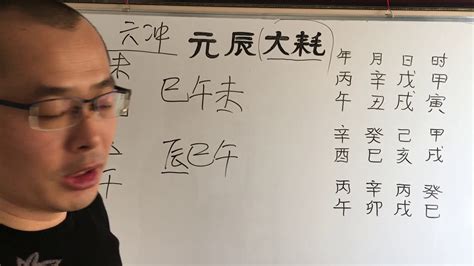 六冲 元辰(大耗)
未
巳午未
辰巳午
年月日时
丙辛戊甲
午丑戌寅
辛癸己甲
酉巳亥戌
丙辛丙癸
午卯戌巳